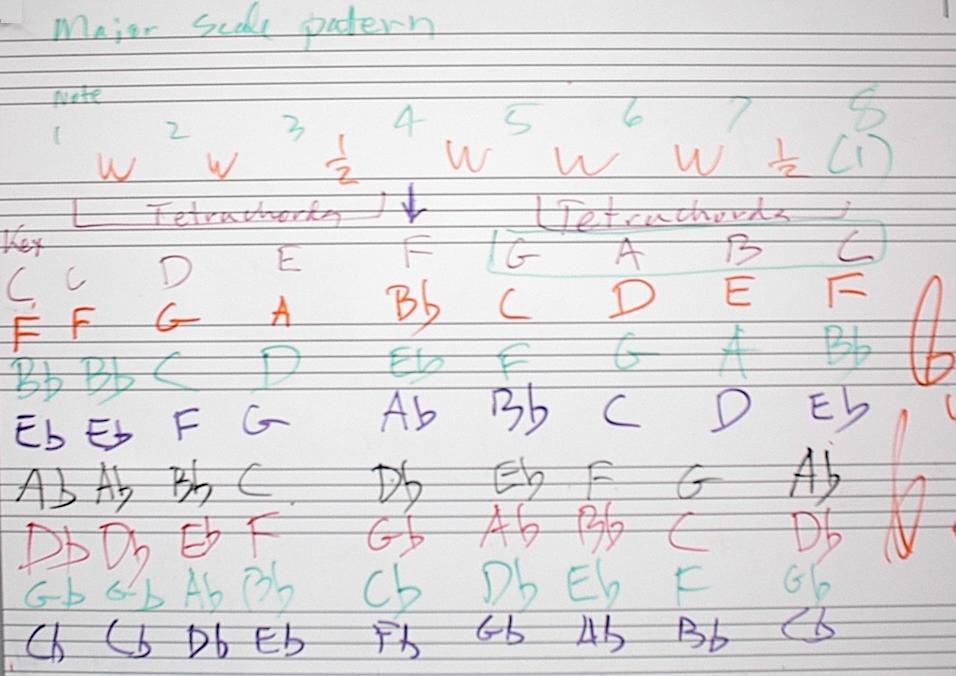 Major Scale patern
Note
1 2 3 4 5 6 7 8
W W 1/2 W W W 1/2 (1)
Tetrachords ↓ Tetrachords
Key
C C D E F G A B C
F F G A Bb C D E F
Bb Bb C D Eb F G A Bb
Eb Eb F G Ab Bb C D Eb
Ab Ab Bb C Db Eb F G Ab
Db Db Eb F Gb Ab Bb C Db
Gb Gb Ab Bb Cb Db Eb F Gb
Cb Cb Db Eb Fb Gb Ab Bb Cb